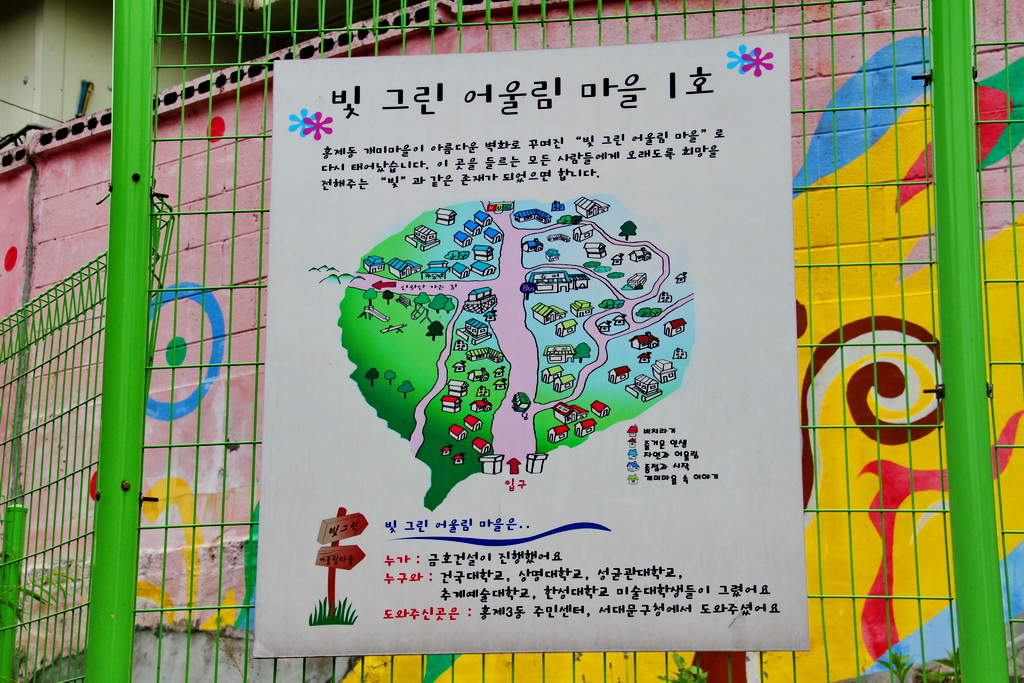 빛 그린 어울림 마을 1호
홍제동 개미마을이 아름다운 벽화로 꾸며진 “빛 그린 어울림 마을”로
다시 태어났습니다. 이 곳을 들르는 모든 사람들에게 오래도록 희망을
전해주는 “빛”과 같은 존재가 되었으면 합니다.
인왕산 가는 길
Bus
입구
즐거운 인생
자연과 어울림
종점과 시작
개미마을 속 이야기
빛그린
어울림마을
빛 그린 어울림 마을은..
누가 : 금호건설이 진행했어요
누구와 : 건국대학교, 상명대학교, 성균관대학교,
추계예술대학교, 한성대학교 미술대학생들이 그렸어요
도와주신곳은 : 홍제3동 주민센터, 서대문구청에서 도와주셨어요